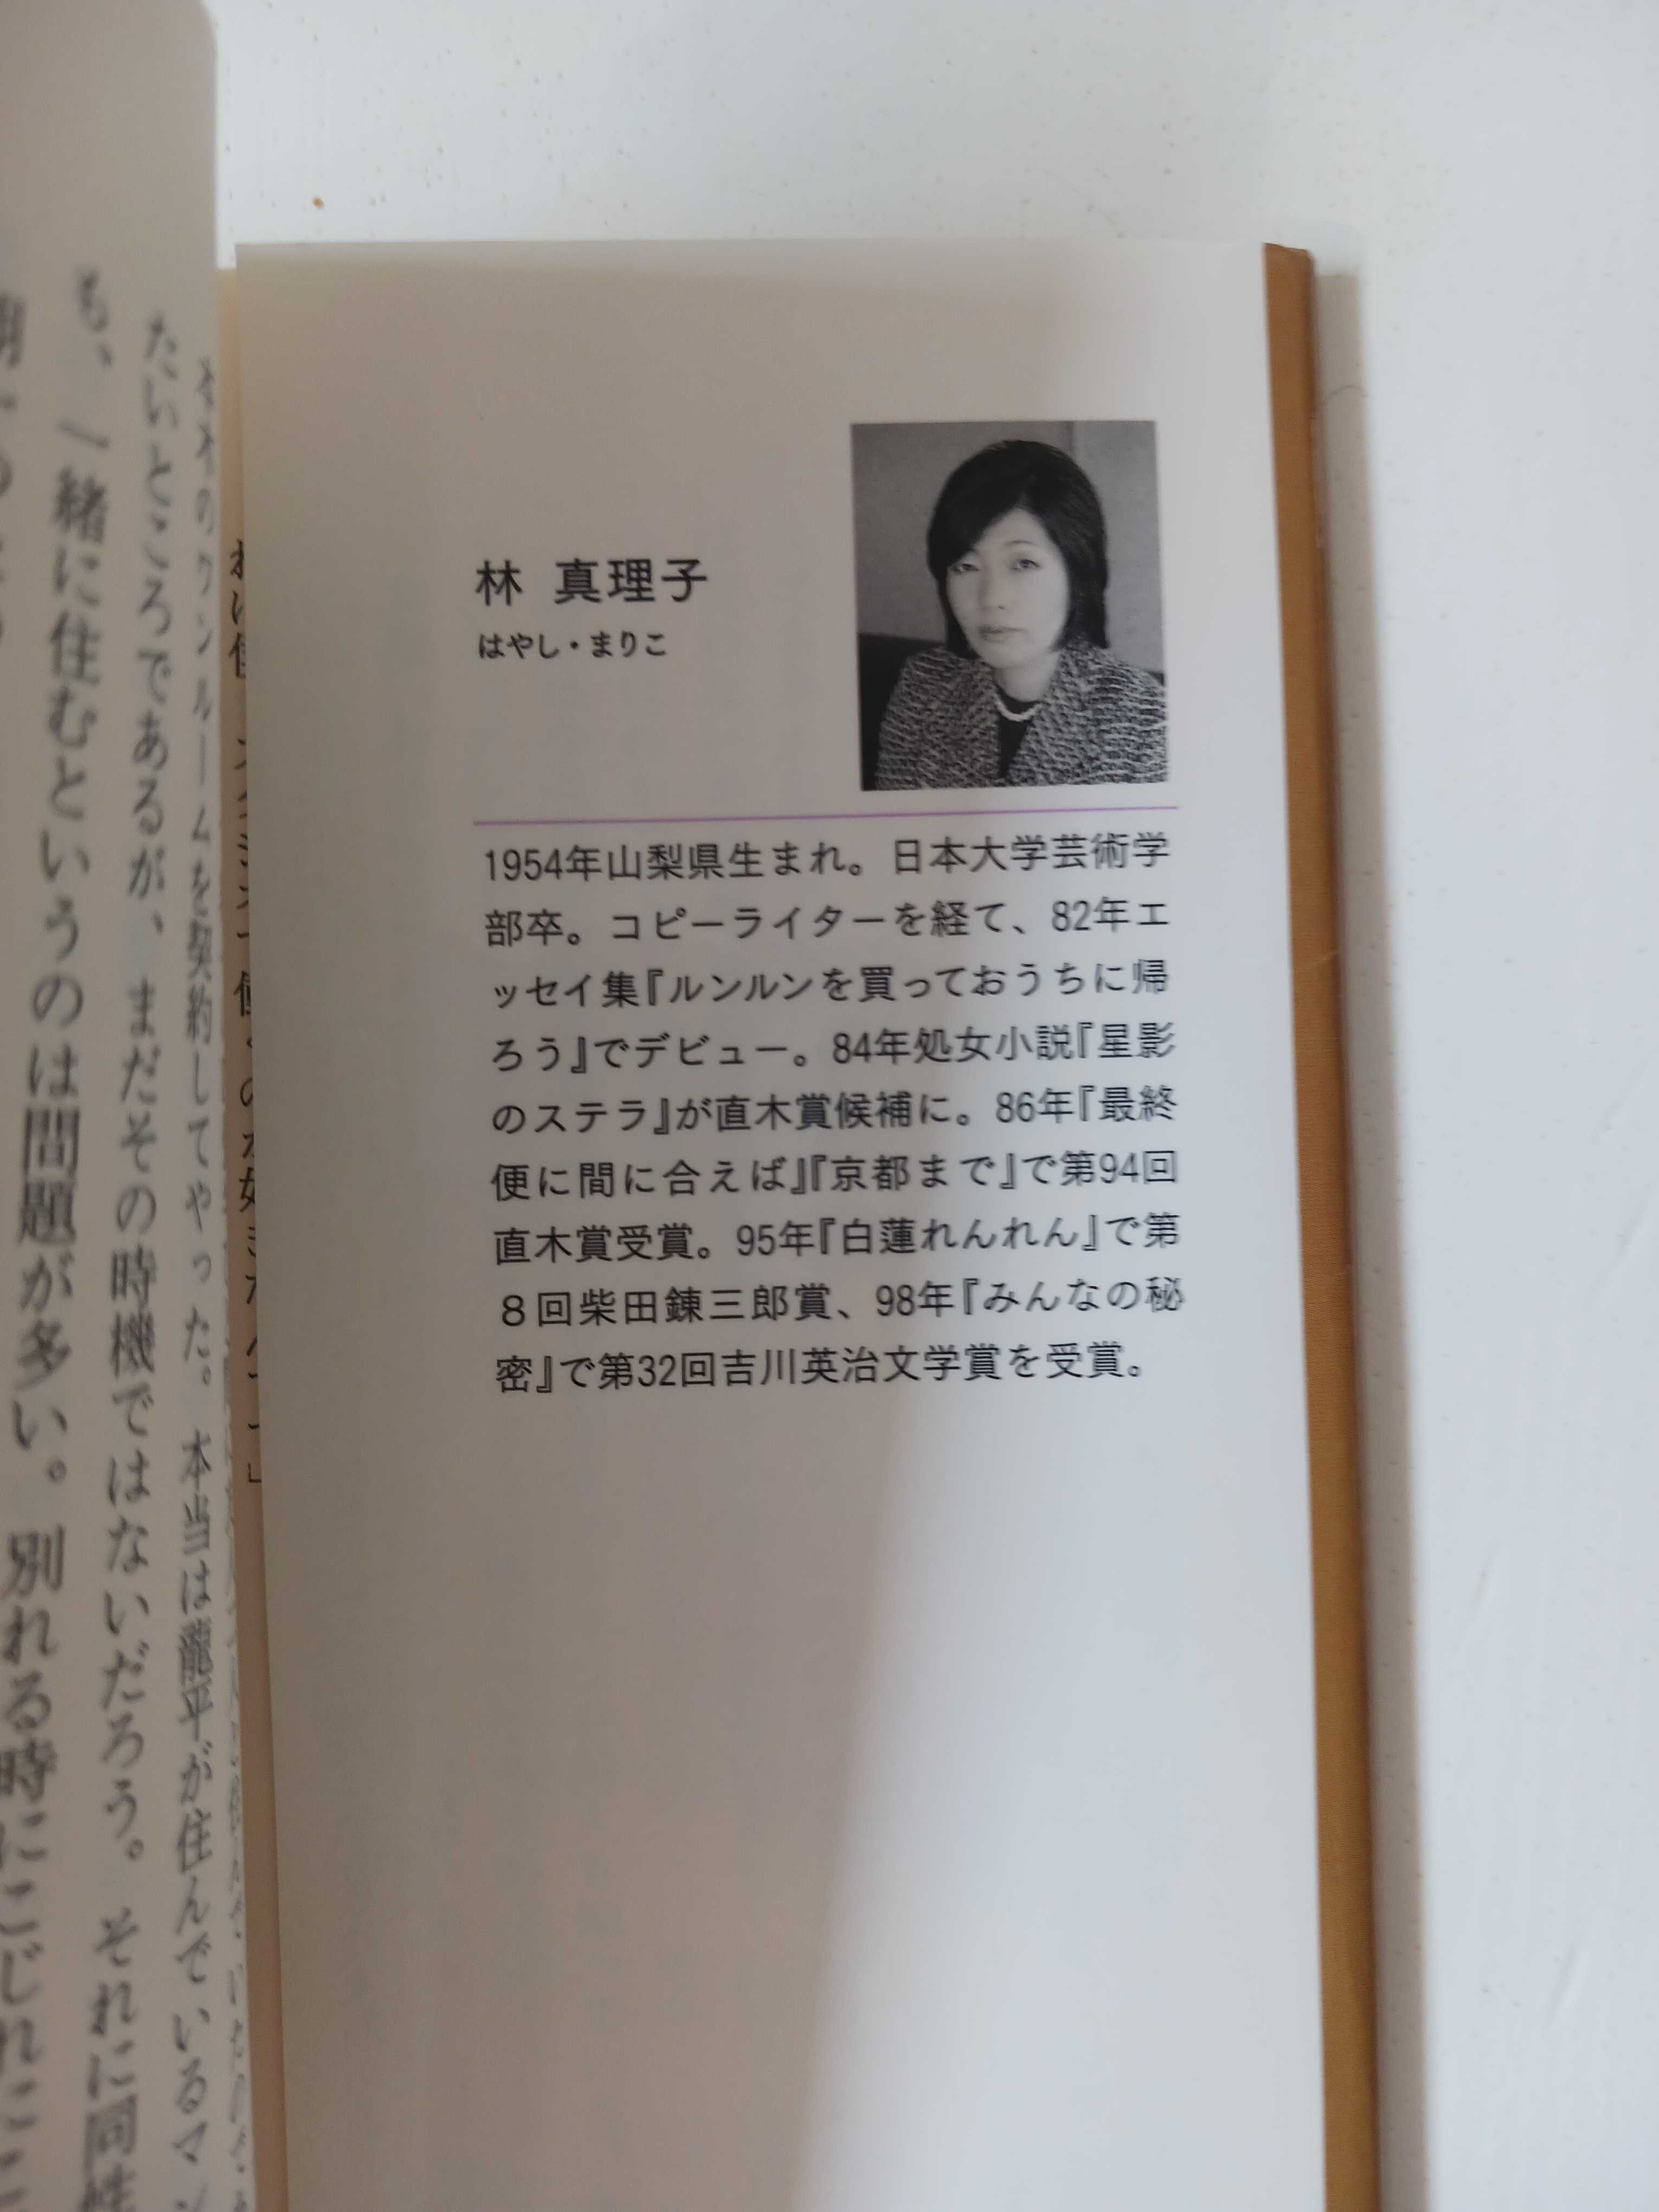 林 真理子
はやし・まりこ
1954年山梨県生まれ。日本大学芸術学
部卒。コピーライターを経て、82年エ
ッセイ集『ルンルンを買っておうちに帰
ろう』でデビュー。84年処女小説『星影
のステラ』が直木賞候補に。86年『最終
便に間に合えば』『京都まで』で第94回
直木賞受賞。95年『白蓮れんれん』で第
8回柴田錬三郎賞、98年『みんなの秘
密』で第32回吉川英治文学賞を受賞。
のワンルームを契約してやった。本当は龍平が住んでいるマン
たいところであるが、まだその時機ではないだろう。それに同性
も、一緒に住むというのは問題が多い。別れる時にこじれ